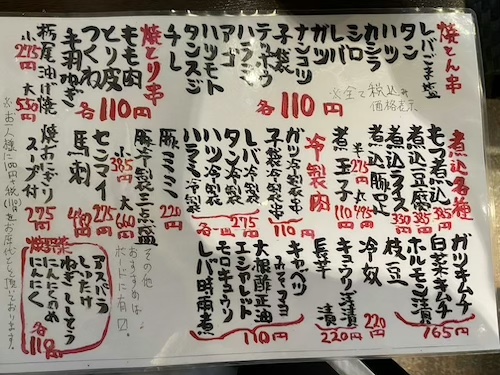 焼とん串
レバごま塩
タン
ハツ
カシラ
シロ
レバ
ガツ
ナンコツ
子袋
テッポウ
ハラミ
アゴ
ハツモト
タンスジ
チレ
各110円
※全て税込み
価格表示
焼とり串
もも肉
とり皮
つくね
手羽
ねぎ
各110円
栃尾油揚げ焼
小275円
大550円
煮込各種
もつ煮込 385円
煮込豆腐 385円
煮込ライス 330円
煮込豚足
半275円
丸495円
煮玉子 110円
冷製肉
ガツ冷製串
子袋冷製串
110円
レバ冷製
タン冷製
ハツ冷製
ハラミ冷製
各一皿275円
豚ミミ 220
豚冷製三点盛
小385円
大660
センマイ 275
馬刺
焼おにぎり
スープ付
275円
ガツキムチ
白菜キムチ
ホルモン漬
165円
枝豆
冷奴
220円
キョウリ浅漬
長芋漬
220円
キャベツ
みそマヨ
大根醤正油
エシャレット
モロキョウリ
レバ時雨煮
110円
その他
おすすめは
ボードに有ります。
焼野菜
アスパラ
しいたけ
ねぎ
ししとう
にんにくのめ
にんにく
各110円